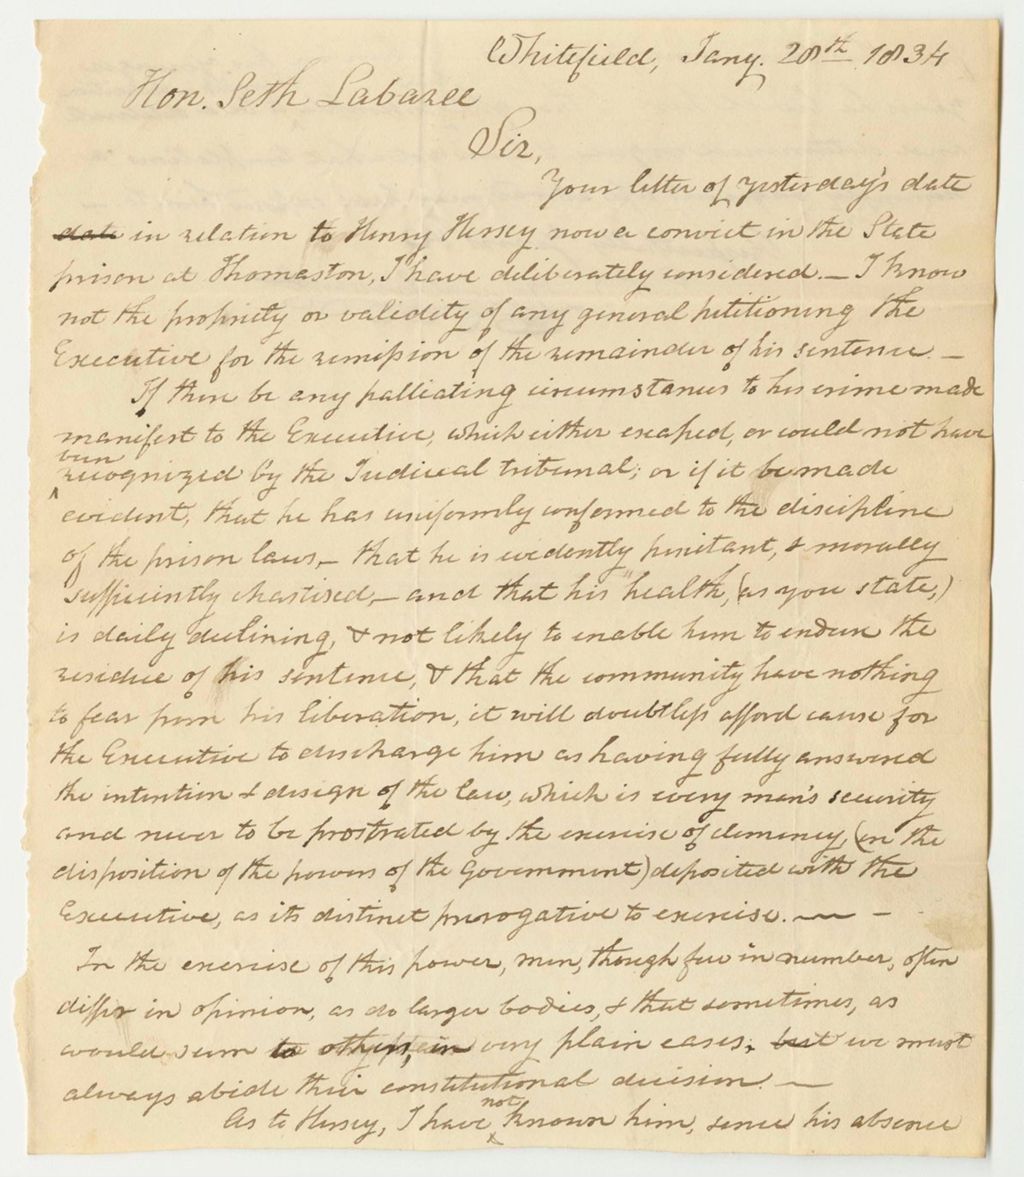 Whitefield, Jany. 28th 1834
Hon. Seth Labaree
Sir,
Your letter of yesterday's date
date in relation to Henry Hersey now a convict in the State
prison at Thomaston, I have deliberately considered. — I know
not the propriety or validity of any general petitioning the
Executive for the remission of the remainder of his sentence. —
If there be any palliating circumstances to his crime made
manifest to the Executive, which either escaped, or would not have
been
recognized by the Judicial tribunal; or if it be made
evident, that he has uniformly conformed to the discipline
of the prison laws, — that he is evidently penitant, & morally
sufficiently chastized, — and that his "health, (as you state,)
is daily declining, & not likely to enable him to endure the
residue of his sentence, & that the community have nothing
to fear from his liberation, it will doubtless afford cause for
the Executive to discharge him as having fully answered
the intention & design of the law, which is every man's security
and never to be prostrated by the exercise of clemency, (in the
disposition of the powers of the Government) deposited with the
Executive, as its distinct prerogative to exercise. — —
In the exercise of this power, men, though few in number, often
differ in opinion, as do larger bodies, & that sometimes, as
would seem to others, in very plain cases, but we must
always abide their constitutional decision. —
not
As to Hersey, I have known him, since his absence